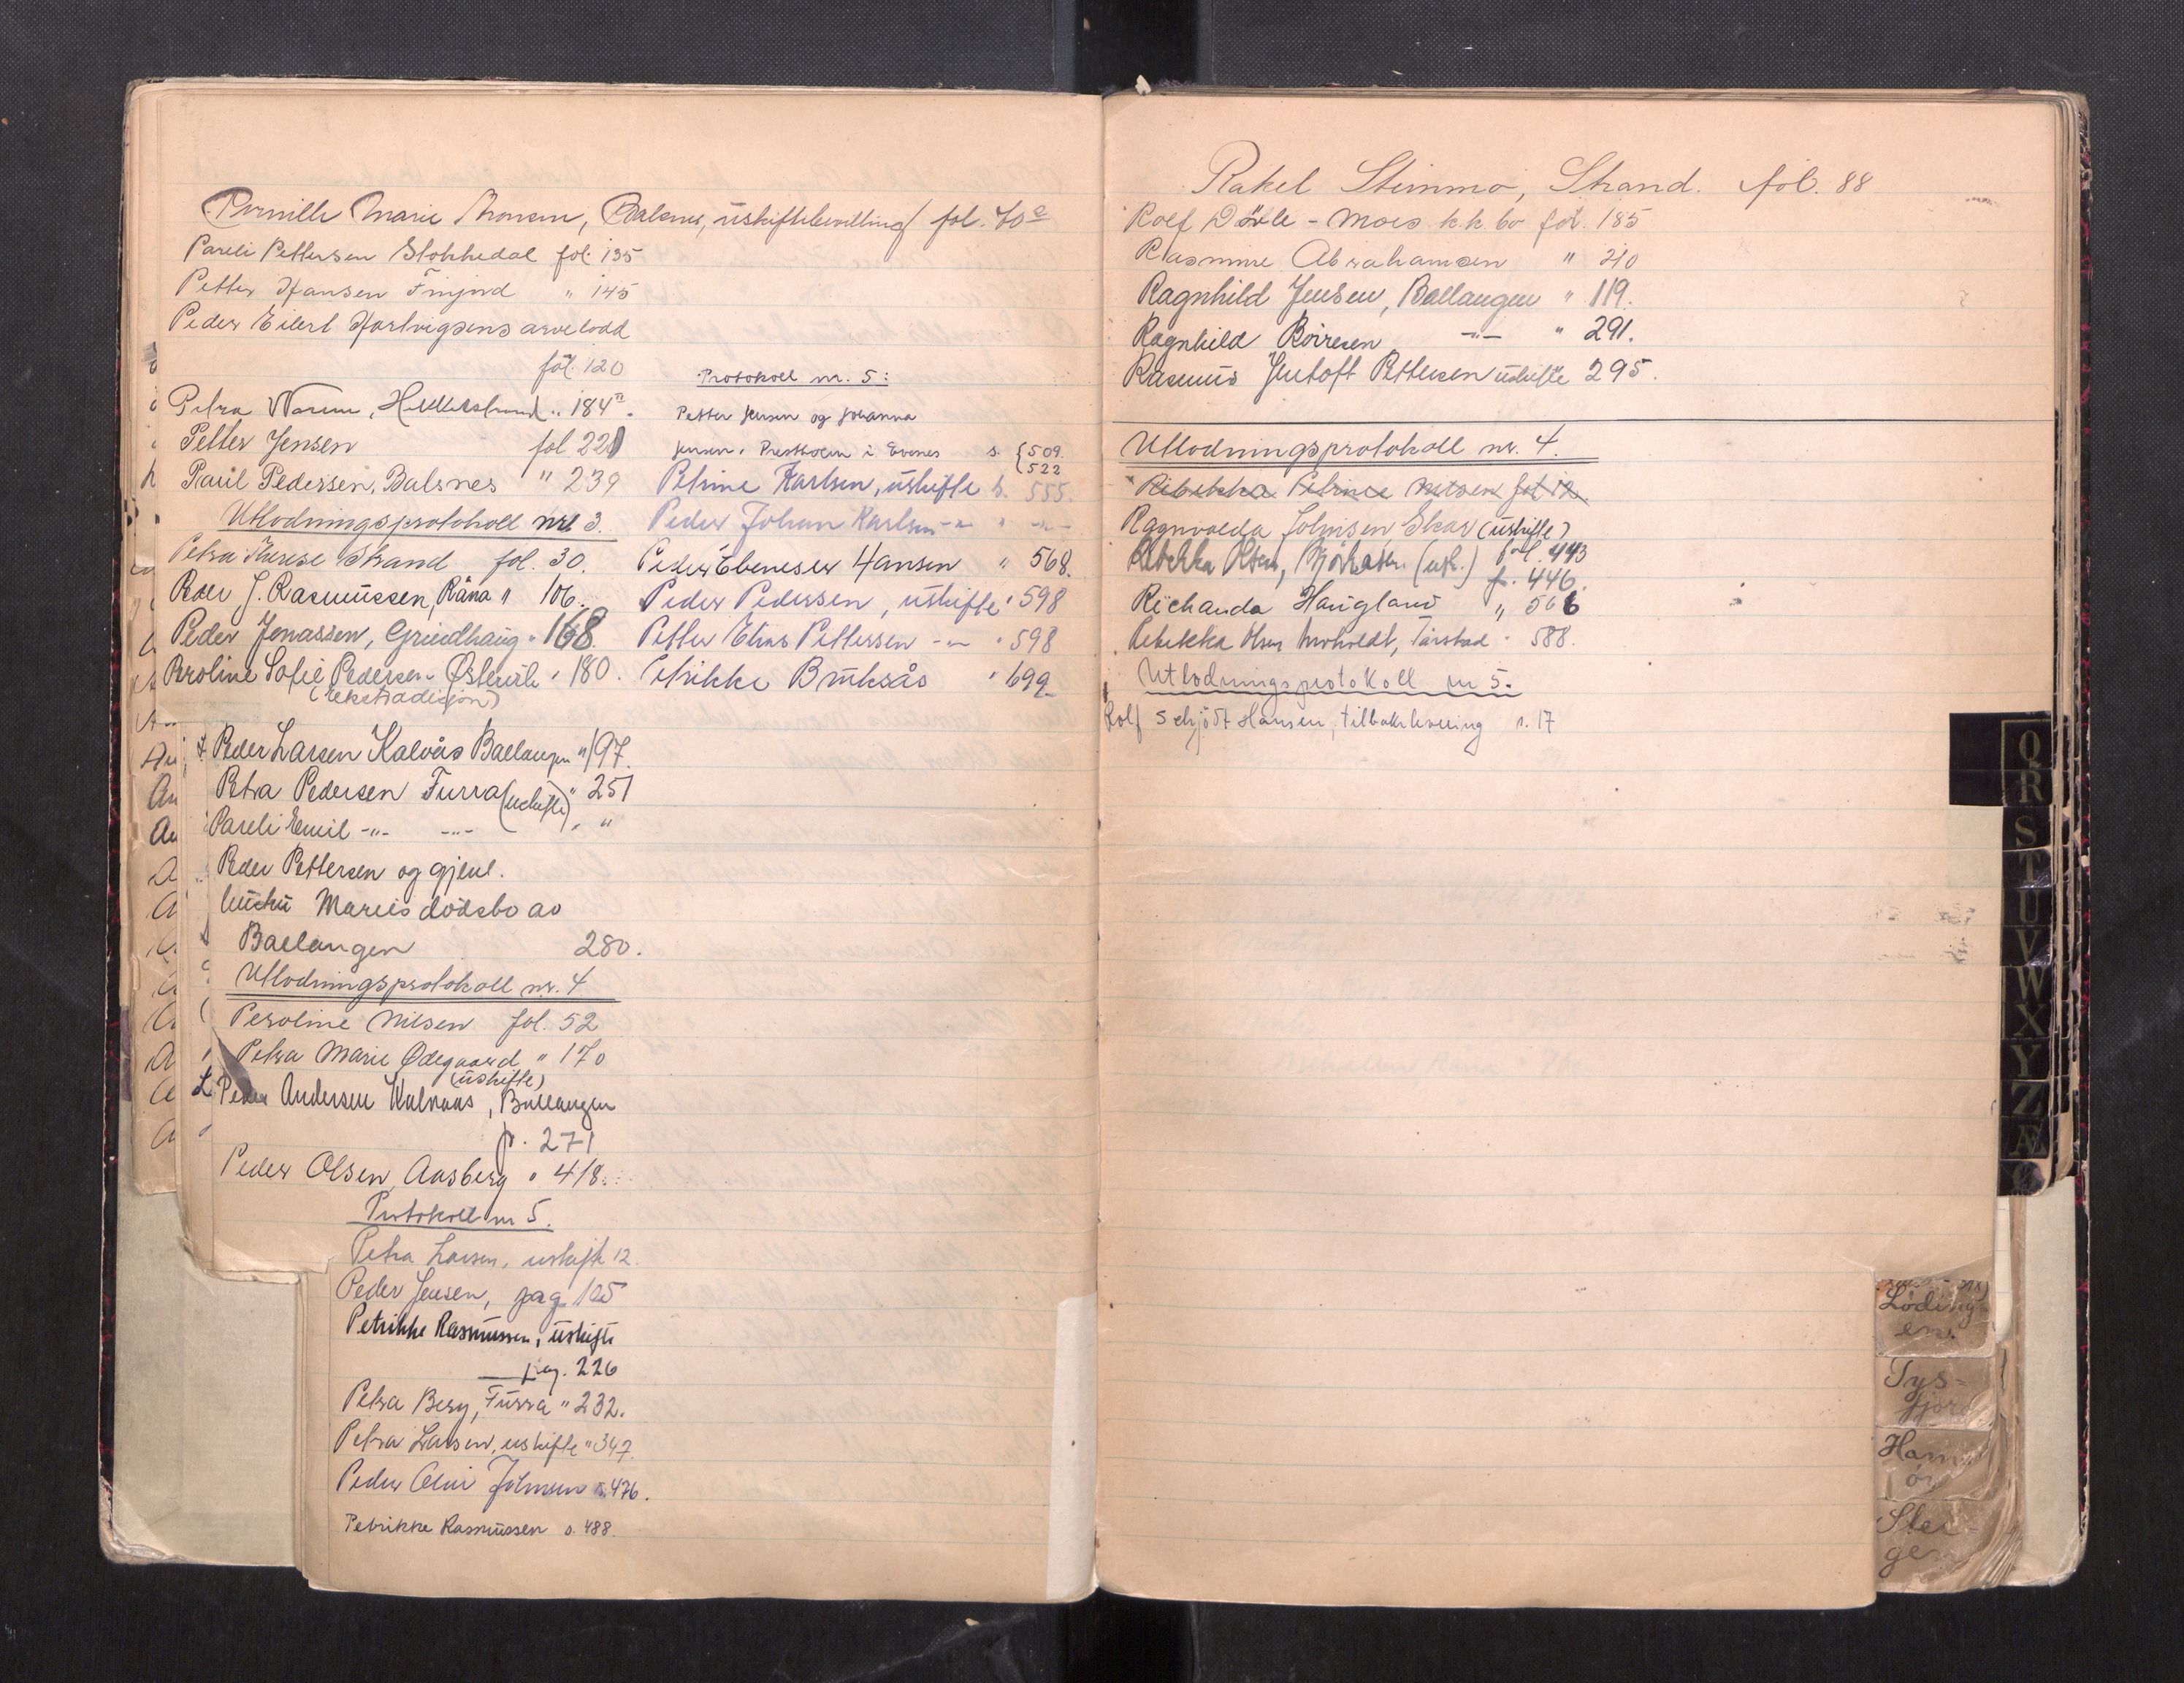 Pernille Marie Monsen, Balsnes, uskiftebevilling fol. 70
Pareli Pettersen Stokkedal fol. 135
Petter Hansen Finjord " 145
Peder Eilert Hartvigsens arvelodd
fol. 120
Petra Warum, Hellerstrand " 184
Petter Jensen fol 221
Paul Pedersen, Balsnes " 239
Utlodningsprotokoll nr. 3.
Petra Therese Strand fol. 30.
Peder J. Rasmussen, Råna " 106.
Peder Jonassen, Grindhaug " 168
Peroline Sofie Pedersen " 180.
(ekstradisjon)
Peder Larsen Kalvås Ballangen " 197.
Petra Pedersen Furra (uskifte) " 251
Pareli Emil -"- -"- " "
Peder Pettersen og gjenl.
hustru Maries dödsbo av
Ballangen 280.
Utlodningsprotokoll nr. 4
Peroline Nilsen fol. 52
Petra Marie Ødegaard " 170
(uskifte)
Peder Andersen Kalvaas, Ballangen
p. 271
Peder Olsen, Aasberg " 418.
Protokoll nr 5.
Petra Larsen, uskifte 12.
Peder Jensen, pag 105
Petrikke Rasmussen, uskifte
pag. 226
Petra Berg, Furra " 232.
Petra Larsen, uskifte " 347.
Peder Johnsen s. 476.
Petrikke Rasmussen s. 488.
Protokoll nr. 5:
Petter Jensen og Johanna
Jensen, Prestholm i Evenes s. {509.
522
Petrine Karlsen, uskifte s. 555.
Peder Johan Karlsen -"- " -"-
Peder Ebeneser Hansen " 568.
Peder Pedersen, uskifte " 598
Petter Elias Pettersen -"- " 598
Petrikke Bruksås " 699
Rakel Steinmo, Strand. fol. 88
Rolf Döxle - Moes k.k. bo fol. 185
Rasmine Abrahamsen " 210
Ragnhild Jensen, Ballangen " 119.
Ragnhild Börresen -"- " 291.
Rasmus Jentoft Pettersen uskifte 295.
Utlodningsprotokoll nr. 4.
Rebekka Petrine Nilsen fol 12.
Ragnvalda Johnsen, Skar (uskifte)
fol. 443
Rebekka Olsen, (usk.) f. 446.
Richarda Haugland " 566
Rebekka Olsen Moholdt, Tårstad " 588.
Utlodningsprotokoll nr 5.
Rolf Schjödt Hansen, tilbakelevering s. 17
Q
R
S
T
U
V
W
X
Y
Z
Æ
Ø
Löding-
en.
Tys-
fjord
Ham
ör
Stei-
gen